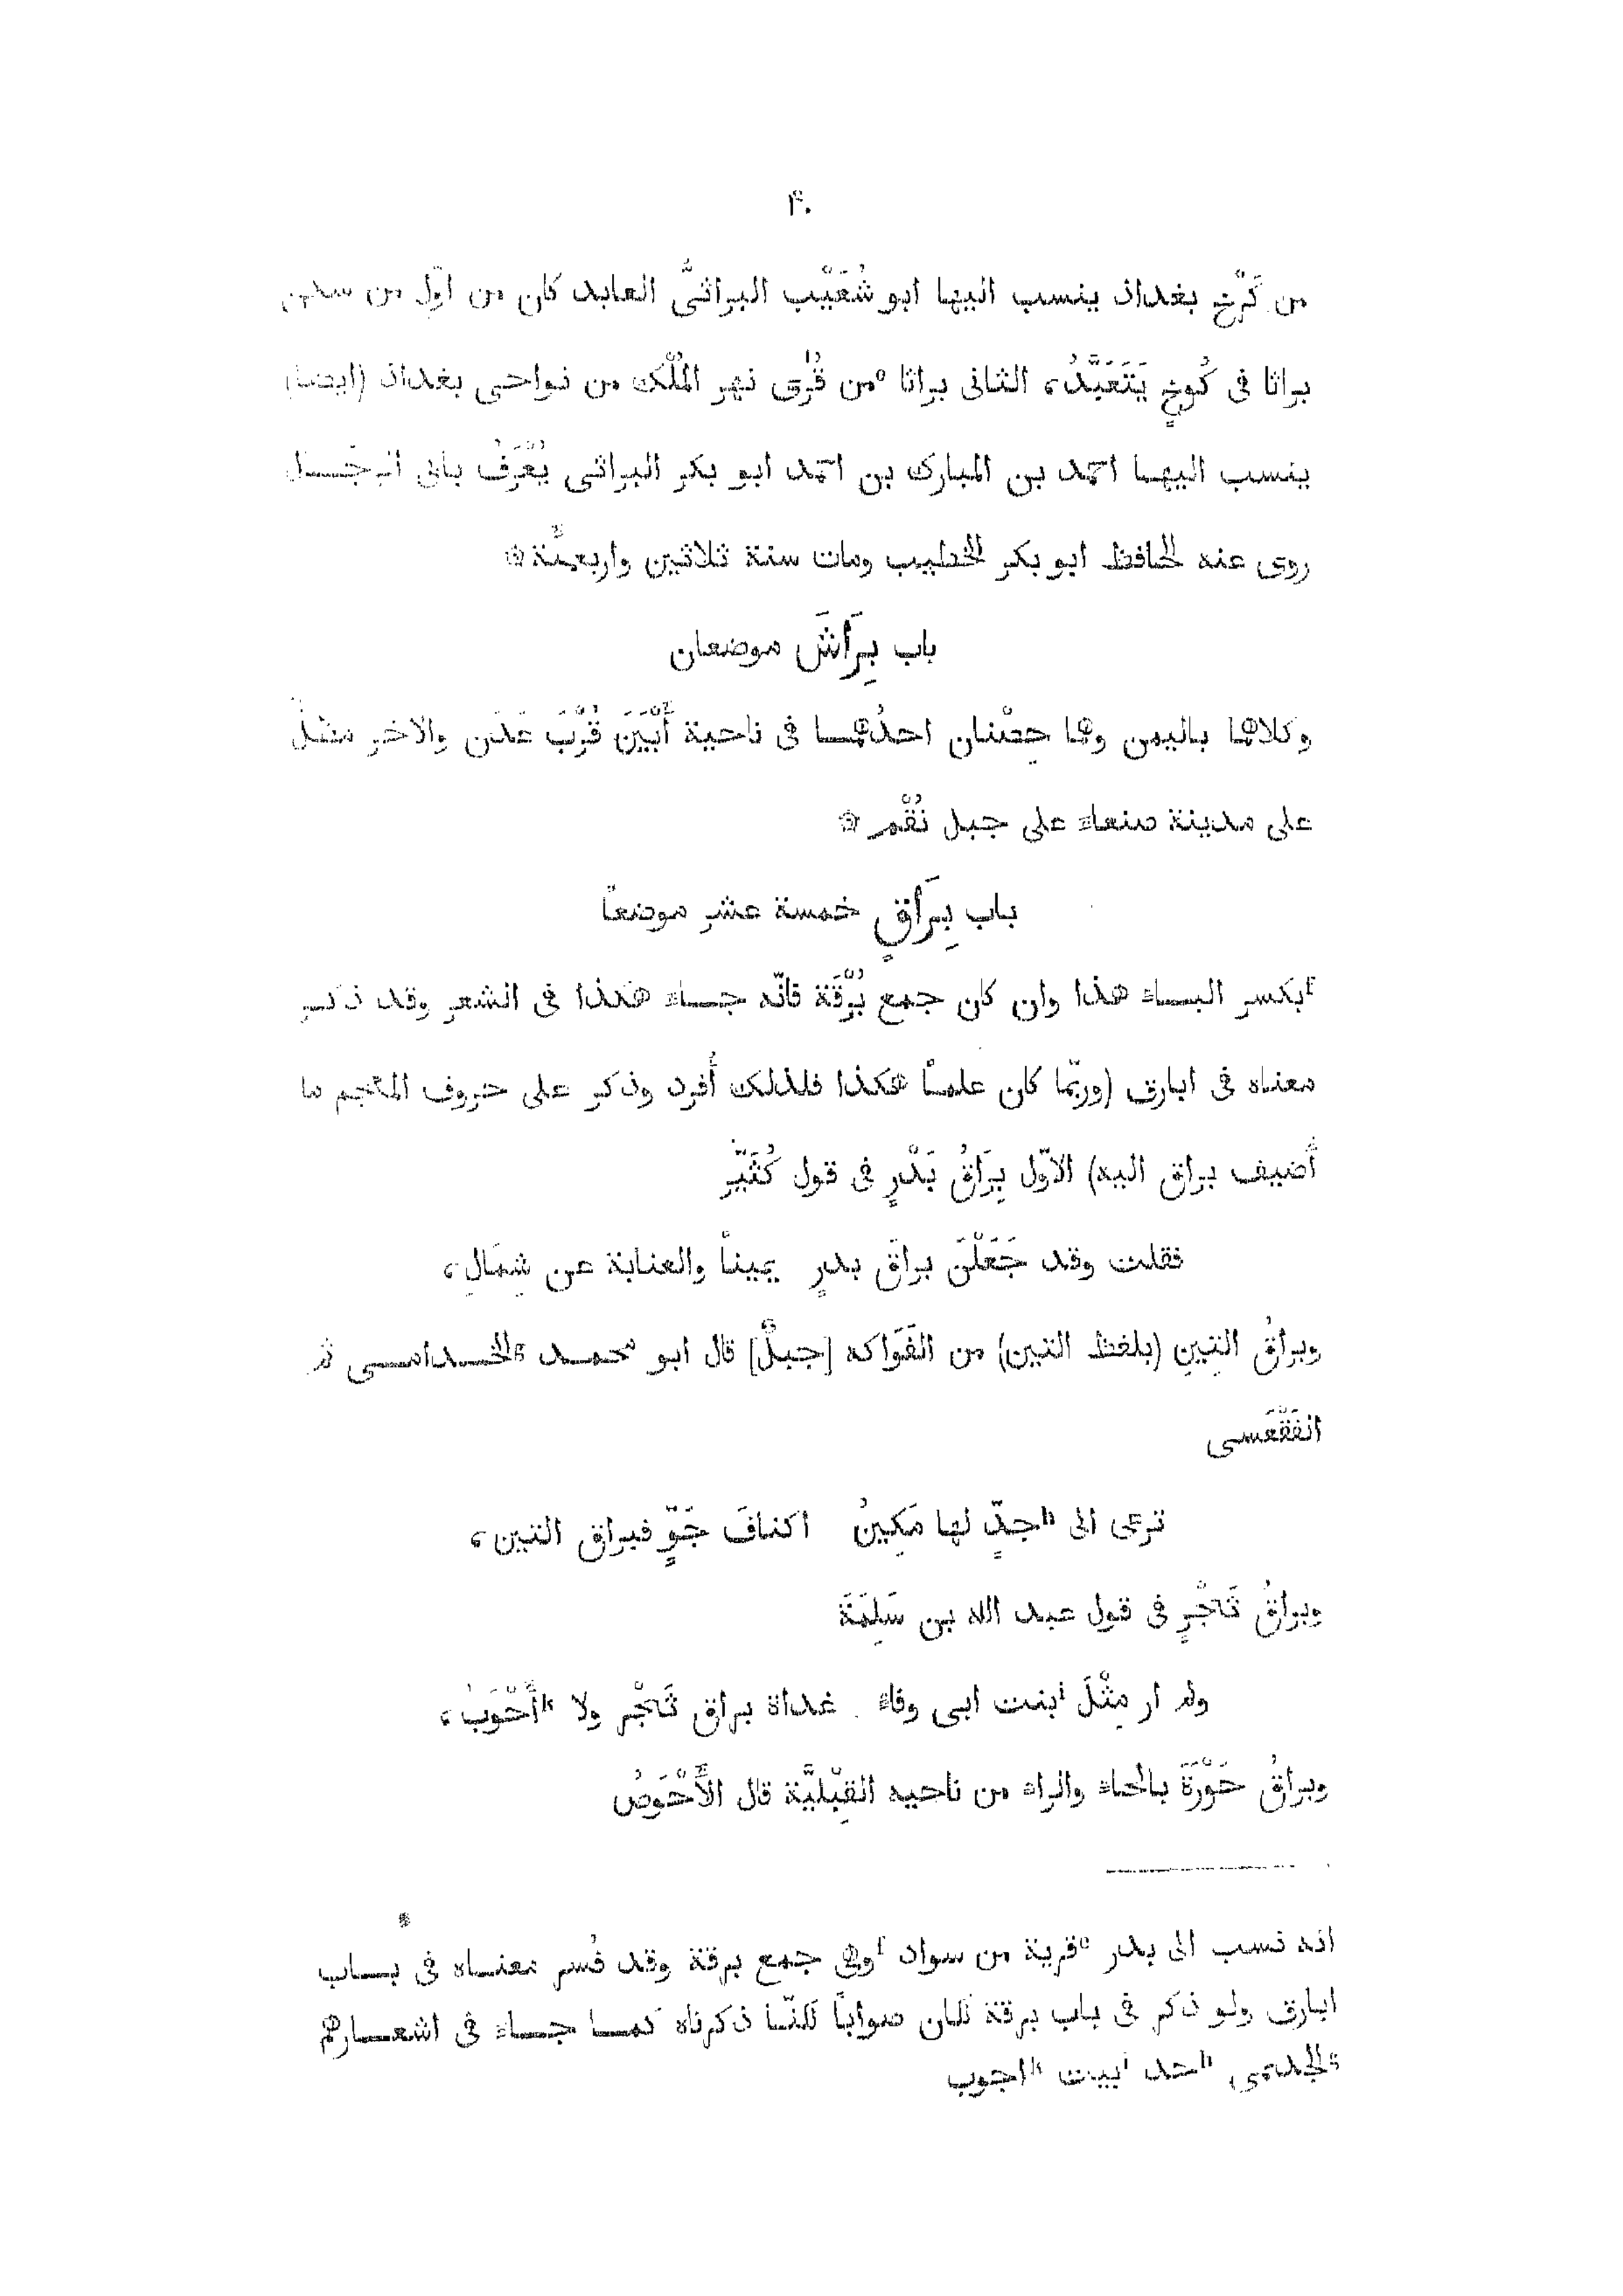 ۴۰
من كَرْخ بغداد ينسب اليها ابو شُعَيْب البراثىُّ العابد كان من اوّل من سكن
براثا فى كُوخٍ يَتَعَبَّدُ، الثانى براثا e من قُرَى نهر المُلْك من نواحى بغداد (ايضا)
ينسب اليهـا احمد بن المبارك بن احمد ابو بكر البراثى يُعْرَفُ بابى الرجـال
روى عنه الحافظ ابو بكر الخطيب ومات سنة ثلاثين واربعمئة ۞
باب بِرَاشَ موضعان
وكلاهما باليمن وهما حِصْنان احدُهمـا فى ناحية أَبْيَنَ قُرْبَ عَدَن والاخر مطلّ
على مدينة صنعاء على جبل نُقْم ۞
باب بِرَاقٍ خمسة عشر موضعًا
f بكسر البـاء هذا وان كان جمع بُرْقَة فانّه جـاء هكذا فى الشعر وقد ذكر
معناه فى ابارق (وربّما كان علمًا هكذا فلذلك أُفرد وذكر على حروف المعجم ما
أُضيف براق اليه) الاوّل بِرَاقُ بَدْرٍ فى قول كُثَيّر
فقلت وقد جَعَلْنَ براقَ بدرٍ يمينًا والعنابة عن شِمَالِ،
وبراقُ التينِ (بلفظ التين) من الفَوَاكه [جبلٌ] قال ابو محمـد g الخـدامـى ثم
الفَقْعَسى
ترعى الى h جدٍّ لها مَكِينُ اكنافَ جَوٍّ فبراق التين،
وبراقُ ثَجْرٍ فى قول عبد الله بن سَلِمَةَ
ولم ار مِثْلَ i بنت ابى وفاء غداة براق ثَجْر ولا k أَحُوبُ،
وبراقُ حَوْرَةَ بالحاء والراء من ناحيه القِبْليَّة قال الأَحْوَصُ
انه نسب الى بدر e قرية من سواد f وهى جمع برقة وقد فُسر معنـاه فى بـاب
ابارق ولو ذكر فى باب برقة لكان صوابًا لكنّا ذكرناه كمـا جـاء فى اشعـارهم
g الجدمى h حد i بيت k اجوب